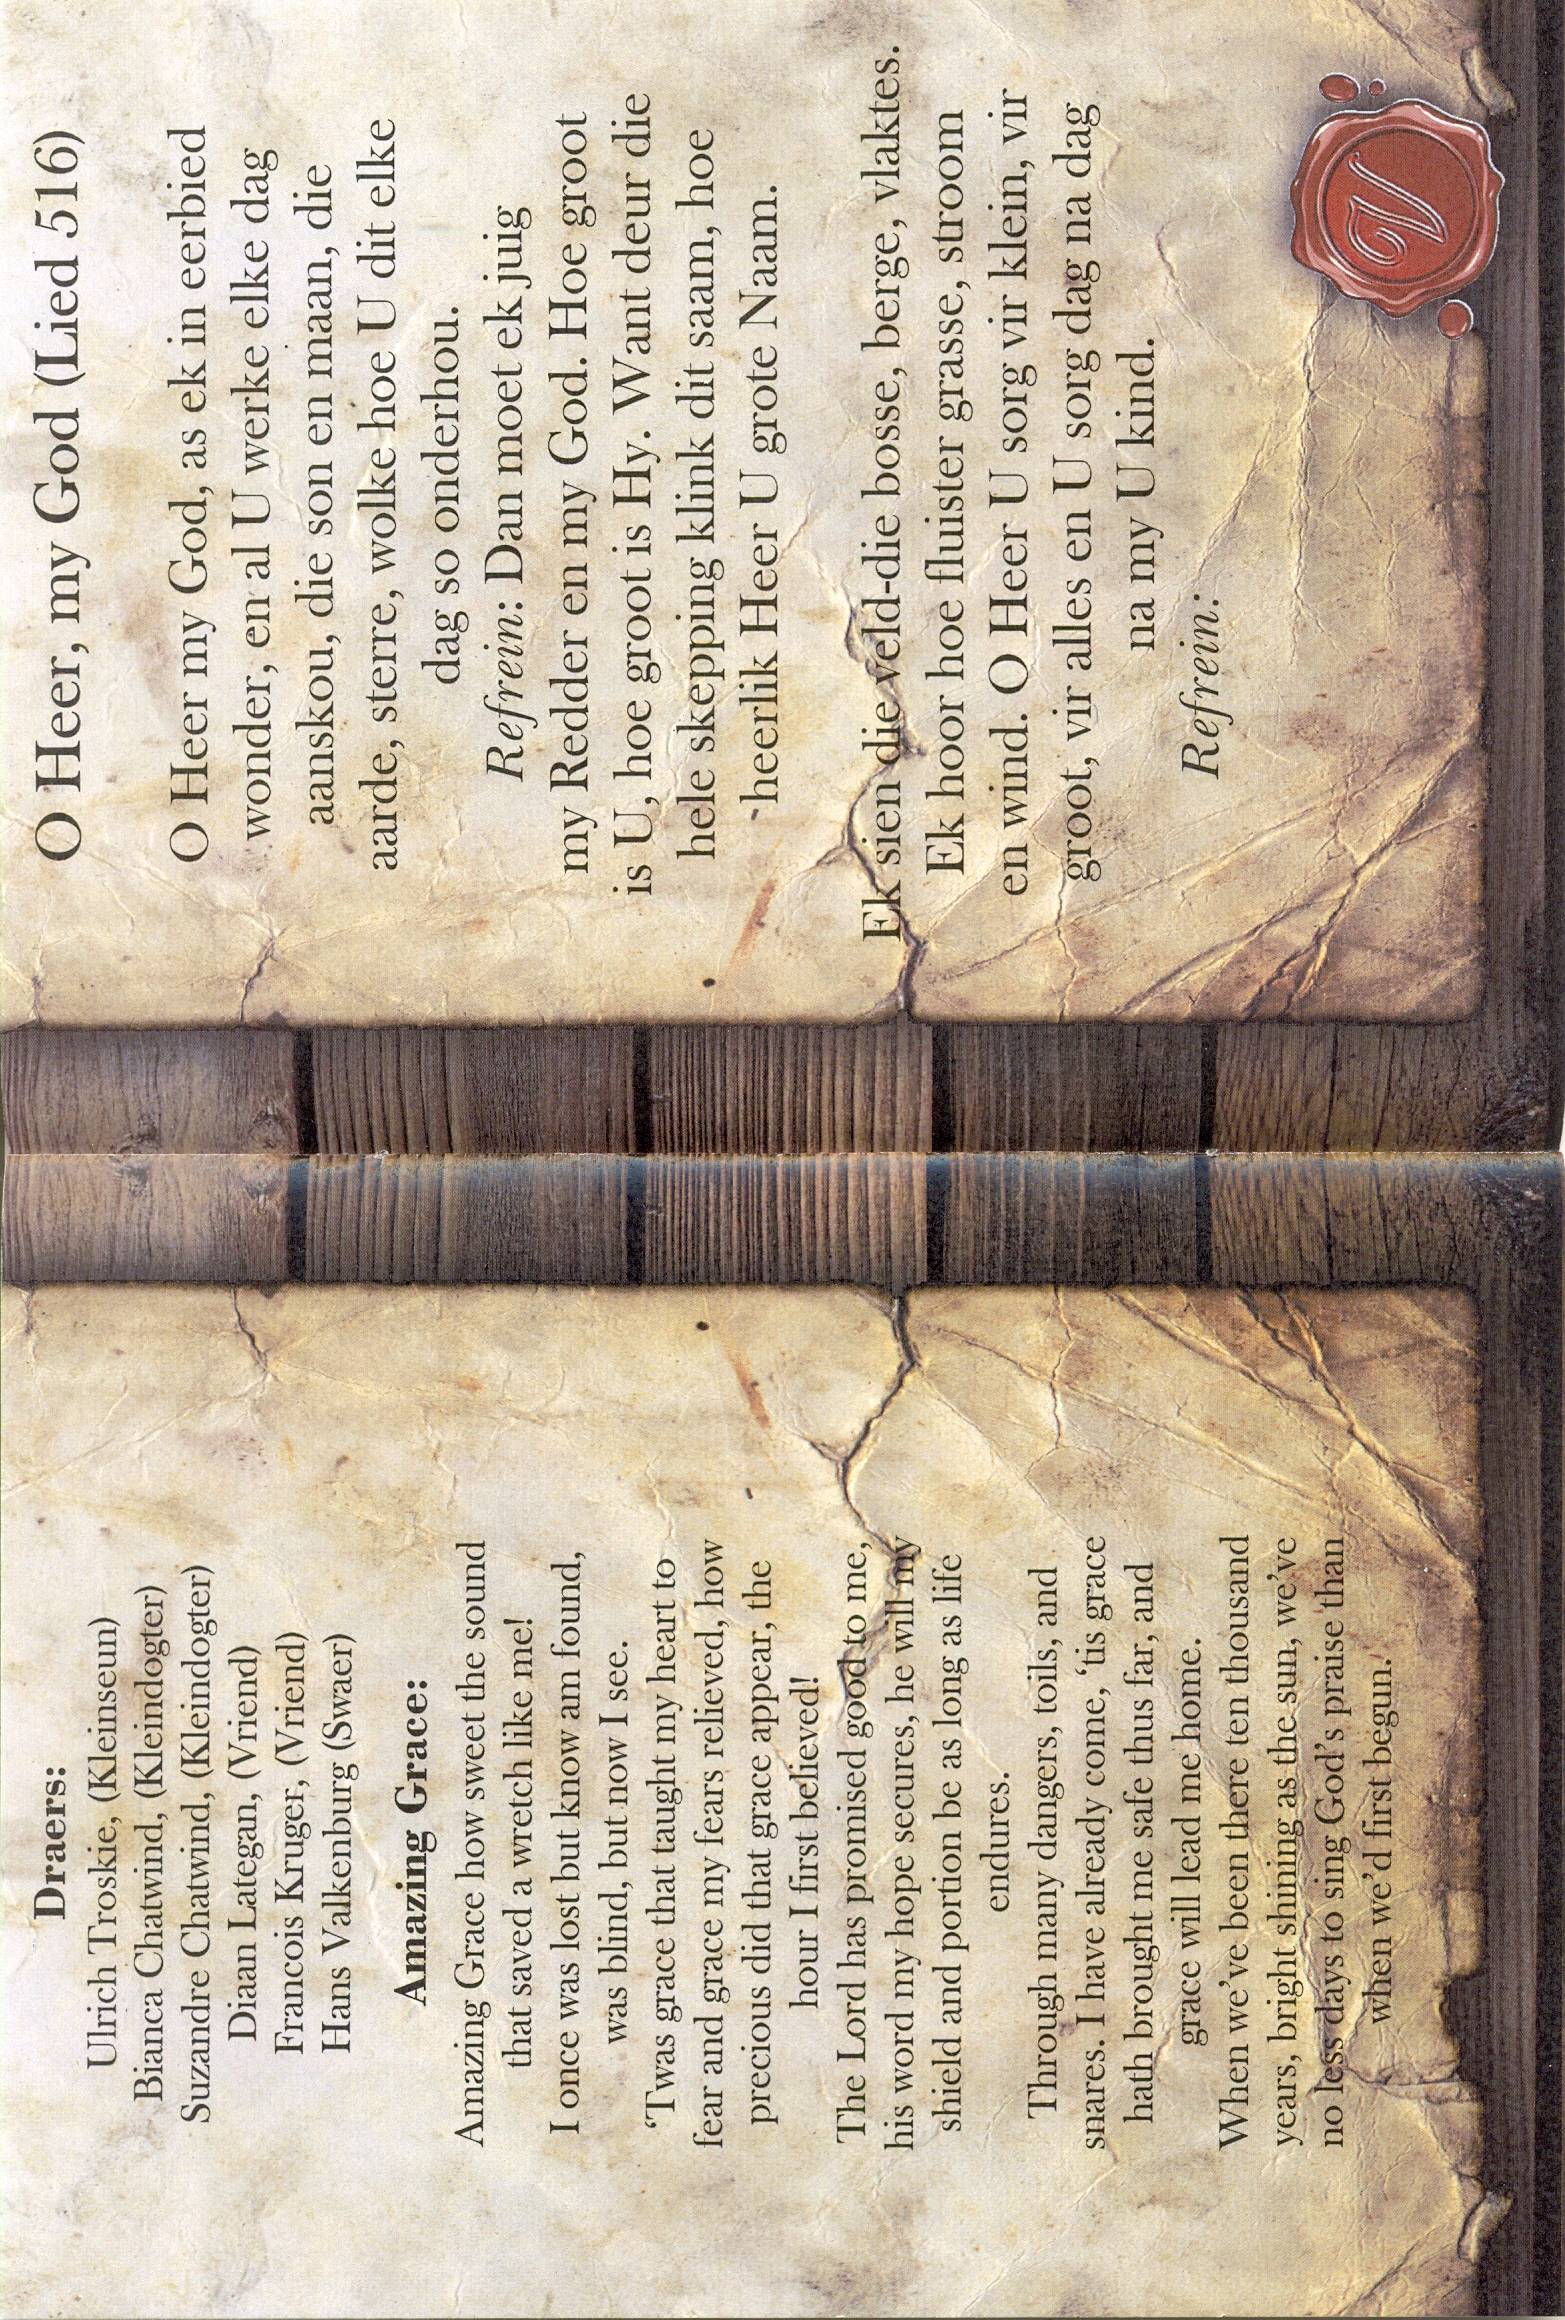 Draers:
Ulrich Troskie, (Kleinseun)
Bianca Chatwind, (Kleindogter)
Suzandre Chatwind, (Kleindogter)
Diaan Lategan, (Vriend)
Francois Kruger, (Vriend)
Hans Valkenburg (Swaer)
Amazing Grace:
Amazing Grace how sweet the sound
that saved a wretch like me!
I once was lost but know am found,
was blind, but now I see.
‘Twas grace that taught my heart to
fear and grace my fears relieved, how
precious did that grace appear, the
hour I first believed!
The Lord has promised good to me,
his word my hope secures, he will my
shield and portion be as long as life
endures.
Through many dangers, toils, and
snares. I have already come, ‘tis grace
hath brought me safe thus far, and
grace will lead me home.
When we’ve been there ten thousand
years, bright shining as the sun, we’ve
no less days to sing God’s praise than
when we’d first begun.
O Heer, my God (Lied 516)
O Heer my God, as ek in eerbied
wonder, en al U werke elke dag
aanskou, die son en maan, die
aarde, sterre, wolke hoe U dit elke
dag so onderhou.
Refrein: Dan moet ek juig
my Redder en my God. Hoe groot
is U, hoe groot is Hy. Want deur die
hele skepping klink dit saam, hoe
heerlik Heer U grote Naam.
Ek sien die veld-die bosse, berge, vlaktes.
Ek hoor hoe fluister grasse, stroom
en wind. O Heer U sorg vir klein, vir
groot, vir alles en U sorg dag na dag
na my U kind.
Refrein: